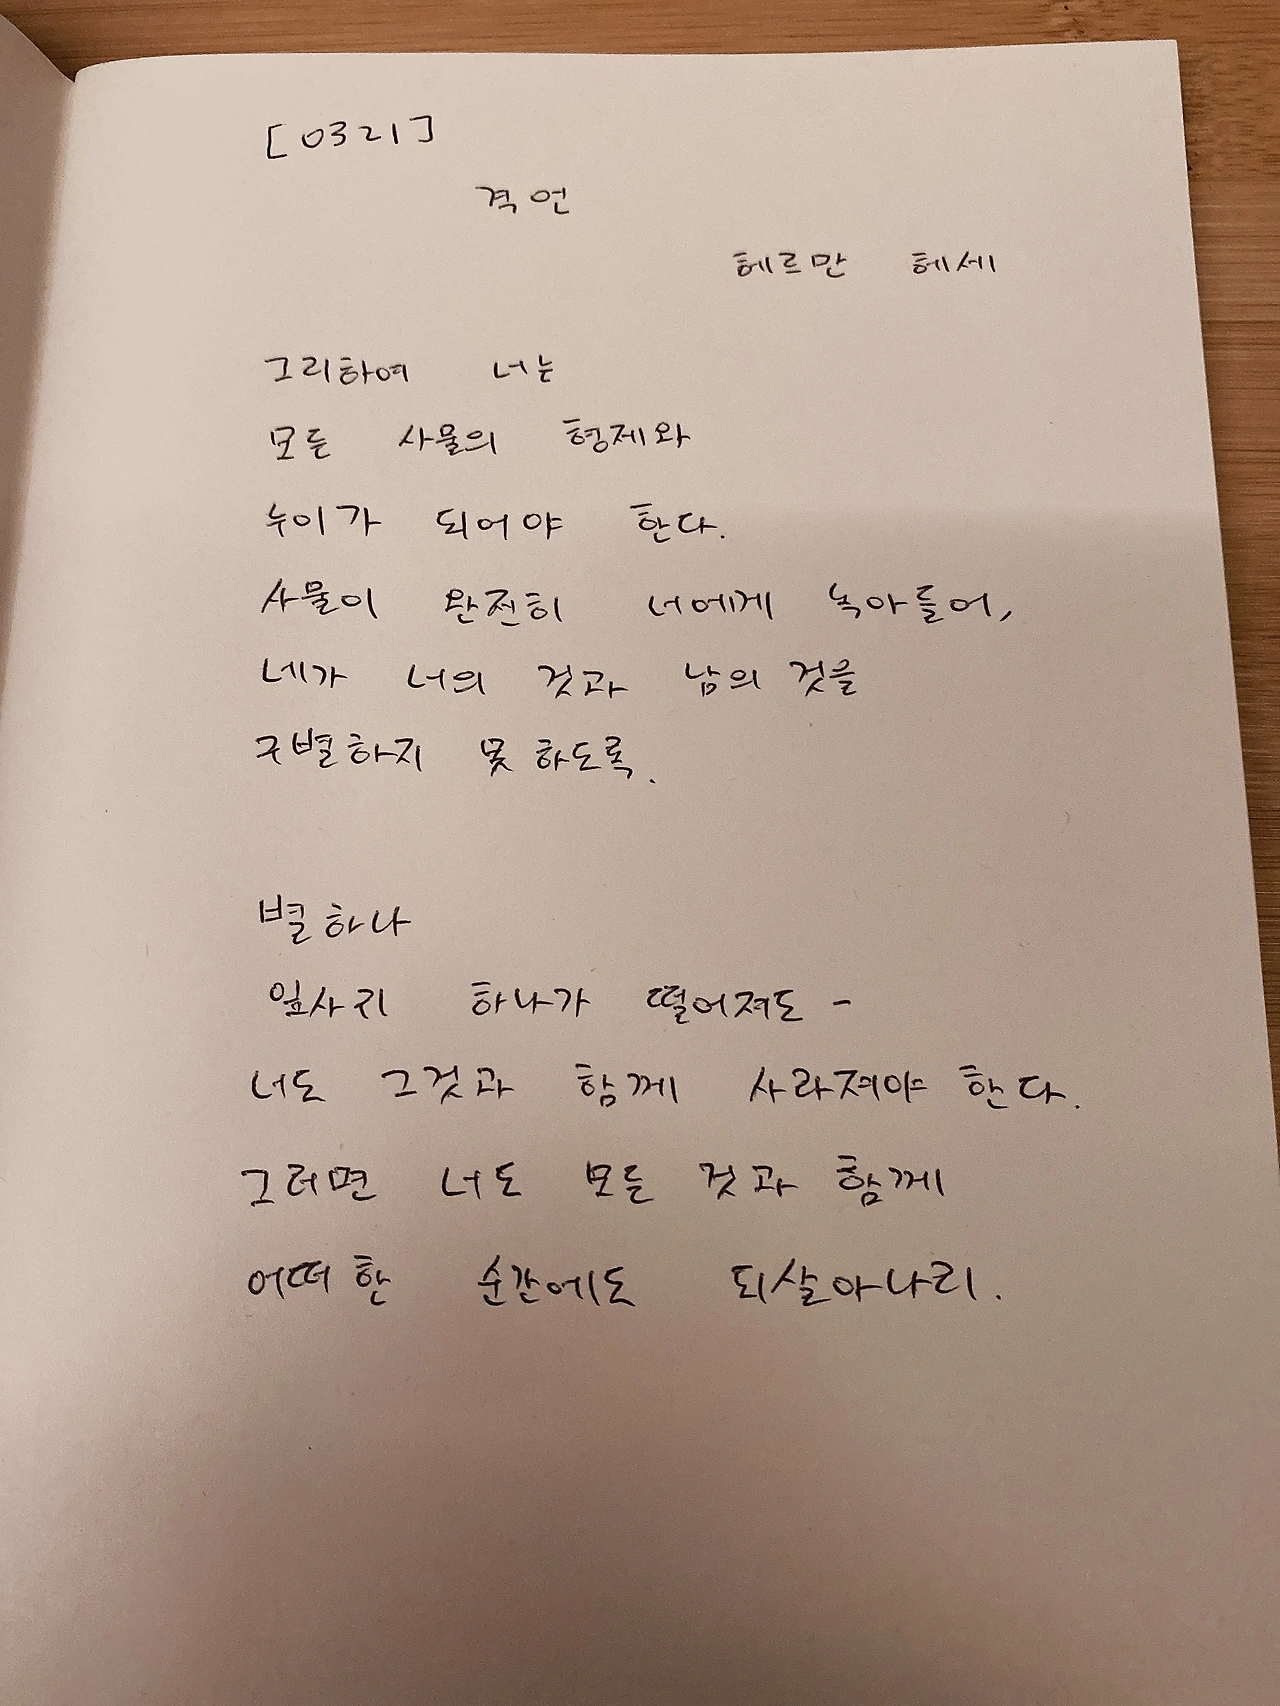 [0321]
격언
헤르만 헤세
그리하여 너는
모든 사물의 형제와
누이가 되어야 한다.
사물이 완전히 너에게 녹아들어,
네가 너의 것과 남의 것을
구별하지 못하도록.
별하나
잎사리 하나가 떨어져도 -
너도 그것과 함께 사라져야 한다.
그러면 너도 모든 것과 함께
어떠한 순간에도 되살아나리.